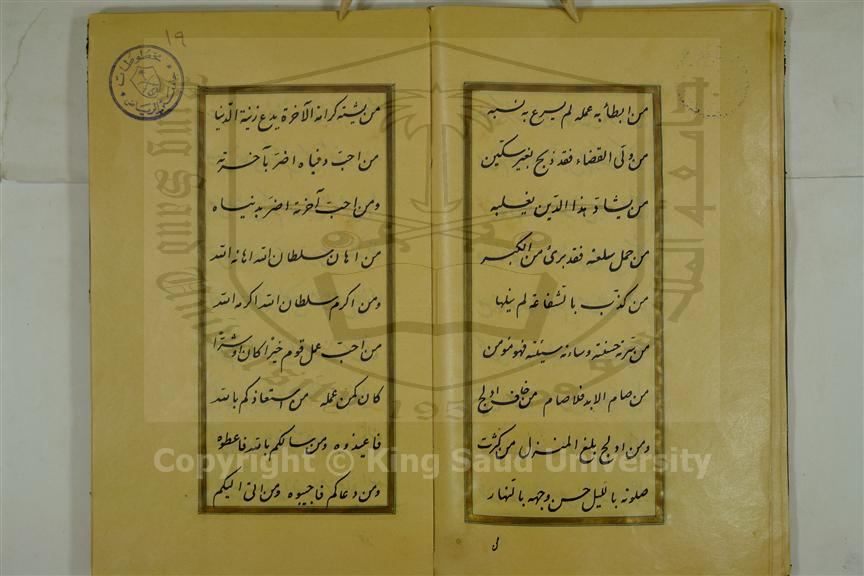 من ابطأ به عمله لم يسرع به نسبه
من ولى القضاء فقد ذبح بغير سكين
من يشادّ هذا الدين يغلبه
من حمل سلعته فقد برئ من الكبر
من كذّب بالشفاعة لم ينلها
من سرته حسنته وساءته سيئته فهو مؤمن
من صام الابد فلا صام من خاف ادلج
ومن ادلج بلغ المنزل من كثرت
صلوته بالليل حسن وجهه بالنهار
١٩
من يشته كرامة الآخرة يدع زينة الدنيا
من احبّ دنياه اضرّ بآخرته
ومن احبّ آخرته اضرّ بدنياه
من اهان سلطان الله اهانه الله
ومن اكرم سلطان الله اكرمه الله
من احبّ عمل قوم خيرا كان او شرّا
كان كمن عمله من استعاذكم بالله
فاعيذوه ومن سألكم بالله فاعطوه
ومن دعاكم فاجيبوه ومن اتى اليكم
Copyright © King Saud University